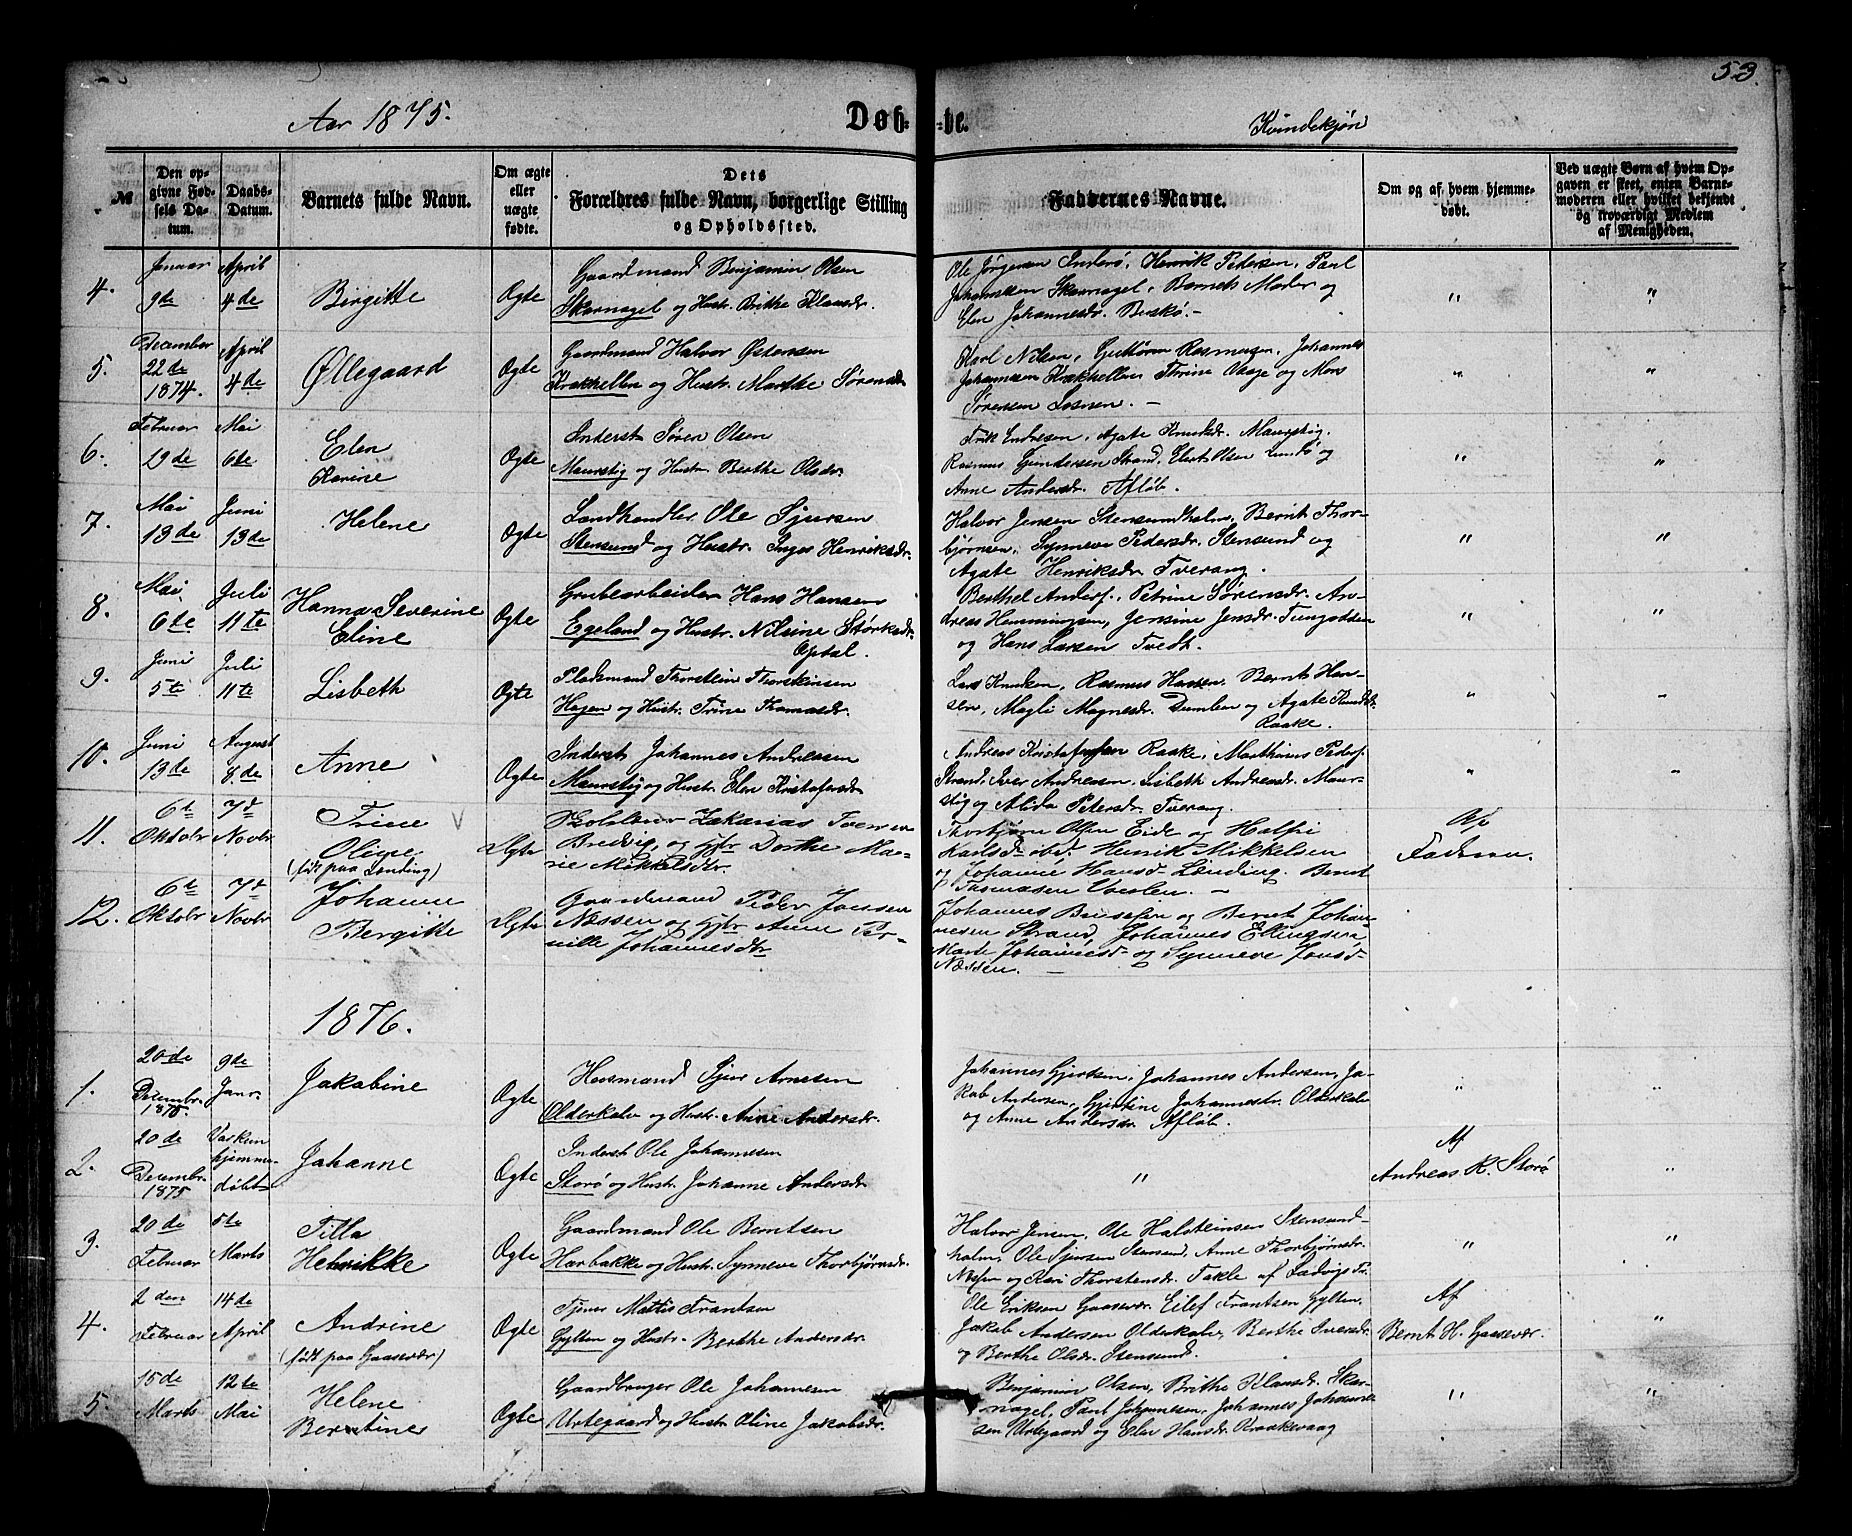 53.
Aar 1875.
Døb-
-te.
Kvindekjøn
№
Den op-
givne Fød-
sels Da-
tum.
Daabs-
Datum.
Barnets fulde Navn.
Om ægte
eller
uægte
fødte.
Dets
Forældres fulde Navn, borgerlige Stilling
og Opholdssted.
Faddernes Navne.
Om og af hvem hjemme-
døbt.
Ved uægte Børn af hvem Op-
gaven er skeet, enten Barne-
moderen eller hvilket bekjendt
og troværdigt Medlem
af Menigheden.
4.
Januar
9de
April
4de
Birgitte
Ægte
Gaardmand Benjamin Olsen
Skarnagel og Hustr. Brithe Klausdr.
Ole Jørgensen Inderø, Henrik Pedersen, Paul
Johannssen Skarnagel, Barnets Moder og
Elen Johannesdr. Buskø. -
"
"
5.
December
22de
1874.
April
4de
Øllegaard
Ægte
Gaardmand Halvor Østensen
Krakhellen og Hustr. Marthe Sørensdr.
Karl Nilsen, Guttorm Rasmussen, Johannes
Johannssen Krakhellen Thrine Vaage og Mons
Sørensen Losnen. -
"
"
6.
Februar
19de
Mai
6te
Elen
Karine
Ægte
Inderst Søren Olsen
Maurstig og Hustr. Berthe Olsdr.
Erik Endresen, Agate Knudsdr. Maurstig.
Rasmus Gundersen Strand, Elert Olsen Lundø og
Anne Andersdr. Afløb.
"
"
7.
Mai
13de
Juni
13de
Helene
Ægte
Landhandler Ole Sjursen
Stensund og Hustr. Inger Henriksdr.
Halvor Jensen Stensundholm, Bernt Thor-
bjørnsen, Synneve Pedersdr. Stensund og
Agate Henriksdr. Tverang.
"
"
8.
Mai
6te
Juli
11te
Hanna Severine
Eline
Ægte
Grubearbeider Hans Hansen
Egeland og Hustr. Nilsine Størksdr.
Opdal.
Berthel Anders., Petrine Sørensdr. An-
dreas Hemmingsen, Jensine Jensdr. Tungodden
og Hans Larsen Tvedt.
"
"
9.
Juni
5te
Juli
11te
Lisbeth
Ægte
Pladsmand Thorstein Thorskinsen
Hagen og Hustr. Trine Thomasdr.
Lars Knudsen, Rasmus Hansen, Bernt Han-
sen, Magli Magnesdr. Dumben og Agate Knudsdr.
Raake.
"
"
10.
Juni
13de
August
8.de
Anne
Ægte
Inderst Johannes Andreasen
Maurstig og Hustr. Elen Kristofersdr.
Andreas Kristofersen Raake, Marthinus Peders.
Strand, Iver Andreasen, Lisbeth Andreasdr. Maur-
stig og Alida Petersdr. Tverang.
"
"
11.
6te
Oktobr
7de
Novbr
Trine
Oline
(født paa Lending)
Ægte
Zakarias Iversen
Bredvig, og Hstr Dorthe Ma-
rie Mikkelsdtr.
Thorbjørn Olsen Eide og
Karlsd. Henrik Mikkelsen
og Johanne Hansd. Lending. Bernt
Thomassen -
Af
Faderen.
12.
6te
Oktobr
7de
Novbr
Johanne
Bergitte
Ægte
Gaardmand Peder Jonsen
Næssen og Hstr Anne Per-
nille Johannesdtr
Johannes og Bernt Johan-
nesen Strand, Johannes Ellingsen
Marte Johannesd. og Synneve Jonsd.
Næssen.
1876.
1.
20de
Decembr.
1875.
9de
Janr.
Jakobine
Ægte
Huusmand Sjur Arnesen
Olderkalv og Hustr. Anne Andersdr.
Johannes Gjertsen, Johannes Andersen, Ja-
kob Andersen, Gjertine Johannesdr. Olderkalv
og Anne Andersdr. Afløb.
"
"
2.
20de
Decembr.
1875
Var kun
hjemme-
døbt
Johanne
Ægte
Inderst Ole Johannesen
Storø og Hustr. Johanne Andersdr.
"
Af
Andreas R. Storø
"
3.
20de
Februar
5te
Marts
Tilla
Henrikke
Ægte
Gaardmand Ole Berntsen
Harbakke og Hustr. Synneve Thorbjørnsdr.
Halvor Jensen, Ole Halsteinsen Stensund-
holm, Ole Sjursen Stensund, Anne Thorbjørnsdr.
Nessen og Kari Thorstensdr. Takle af
"
"
4.
2den
Februar
14de
April
Andrine
(født paa Gaasevær)
Ægte
Tjener Mattis Frantsen
Gylten og Hustr. Berthe Andersdr.
Ole Eriksen Gaasevær, Eilef Frantsen Gylten,
Jakob Andersen Olderkalv, Berthe Iversdr.
og Berthe Olsdr. Stensund.
Af
Bernt H. Gaasevær.
"
5.
15de
Marts
12te
Mai
Helene
Berntine
Ægte
Gaardbruger Ole Johannesen
Urtegaard og Hustr. Oline Jakobsdr.
Benjamin Olsen, Brithe Klausdr. Skar-
nagel, Paul Johannesen, Johannes Johanne-
sen Urtegaard og Elen Hansdr. Kraakevaag
"
"